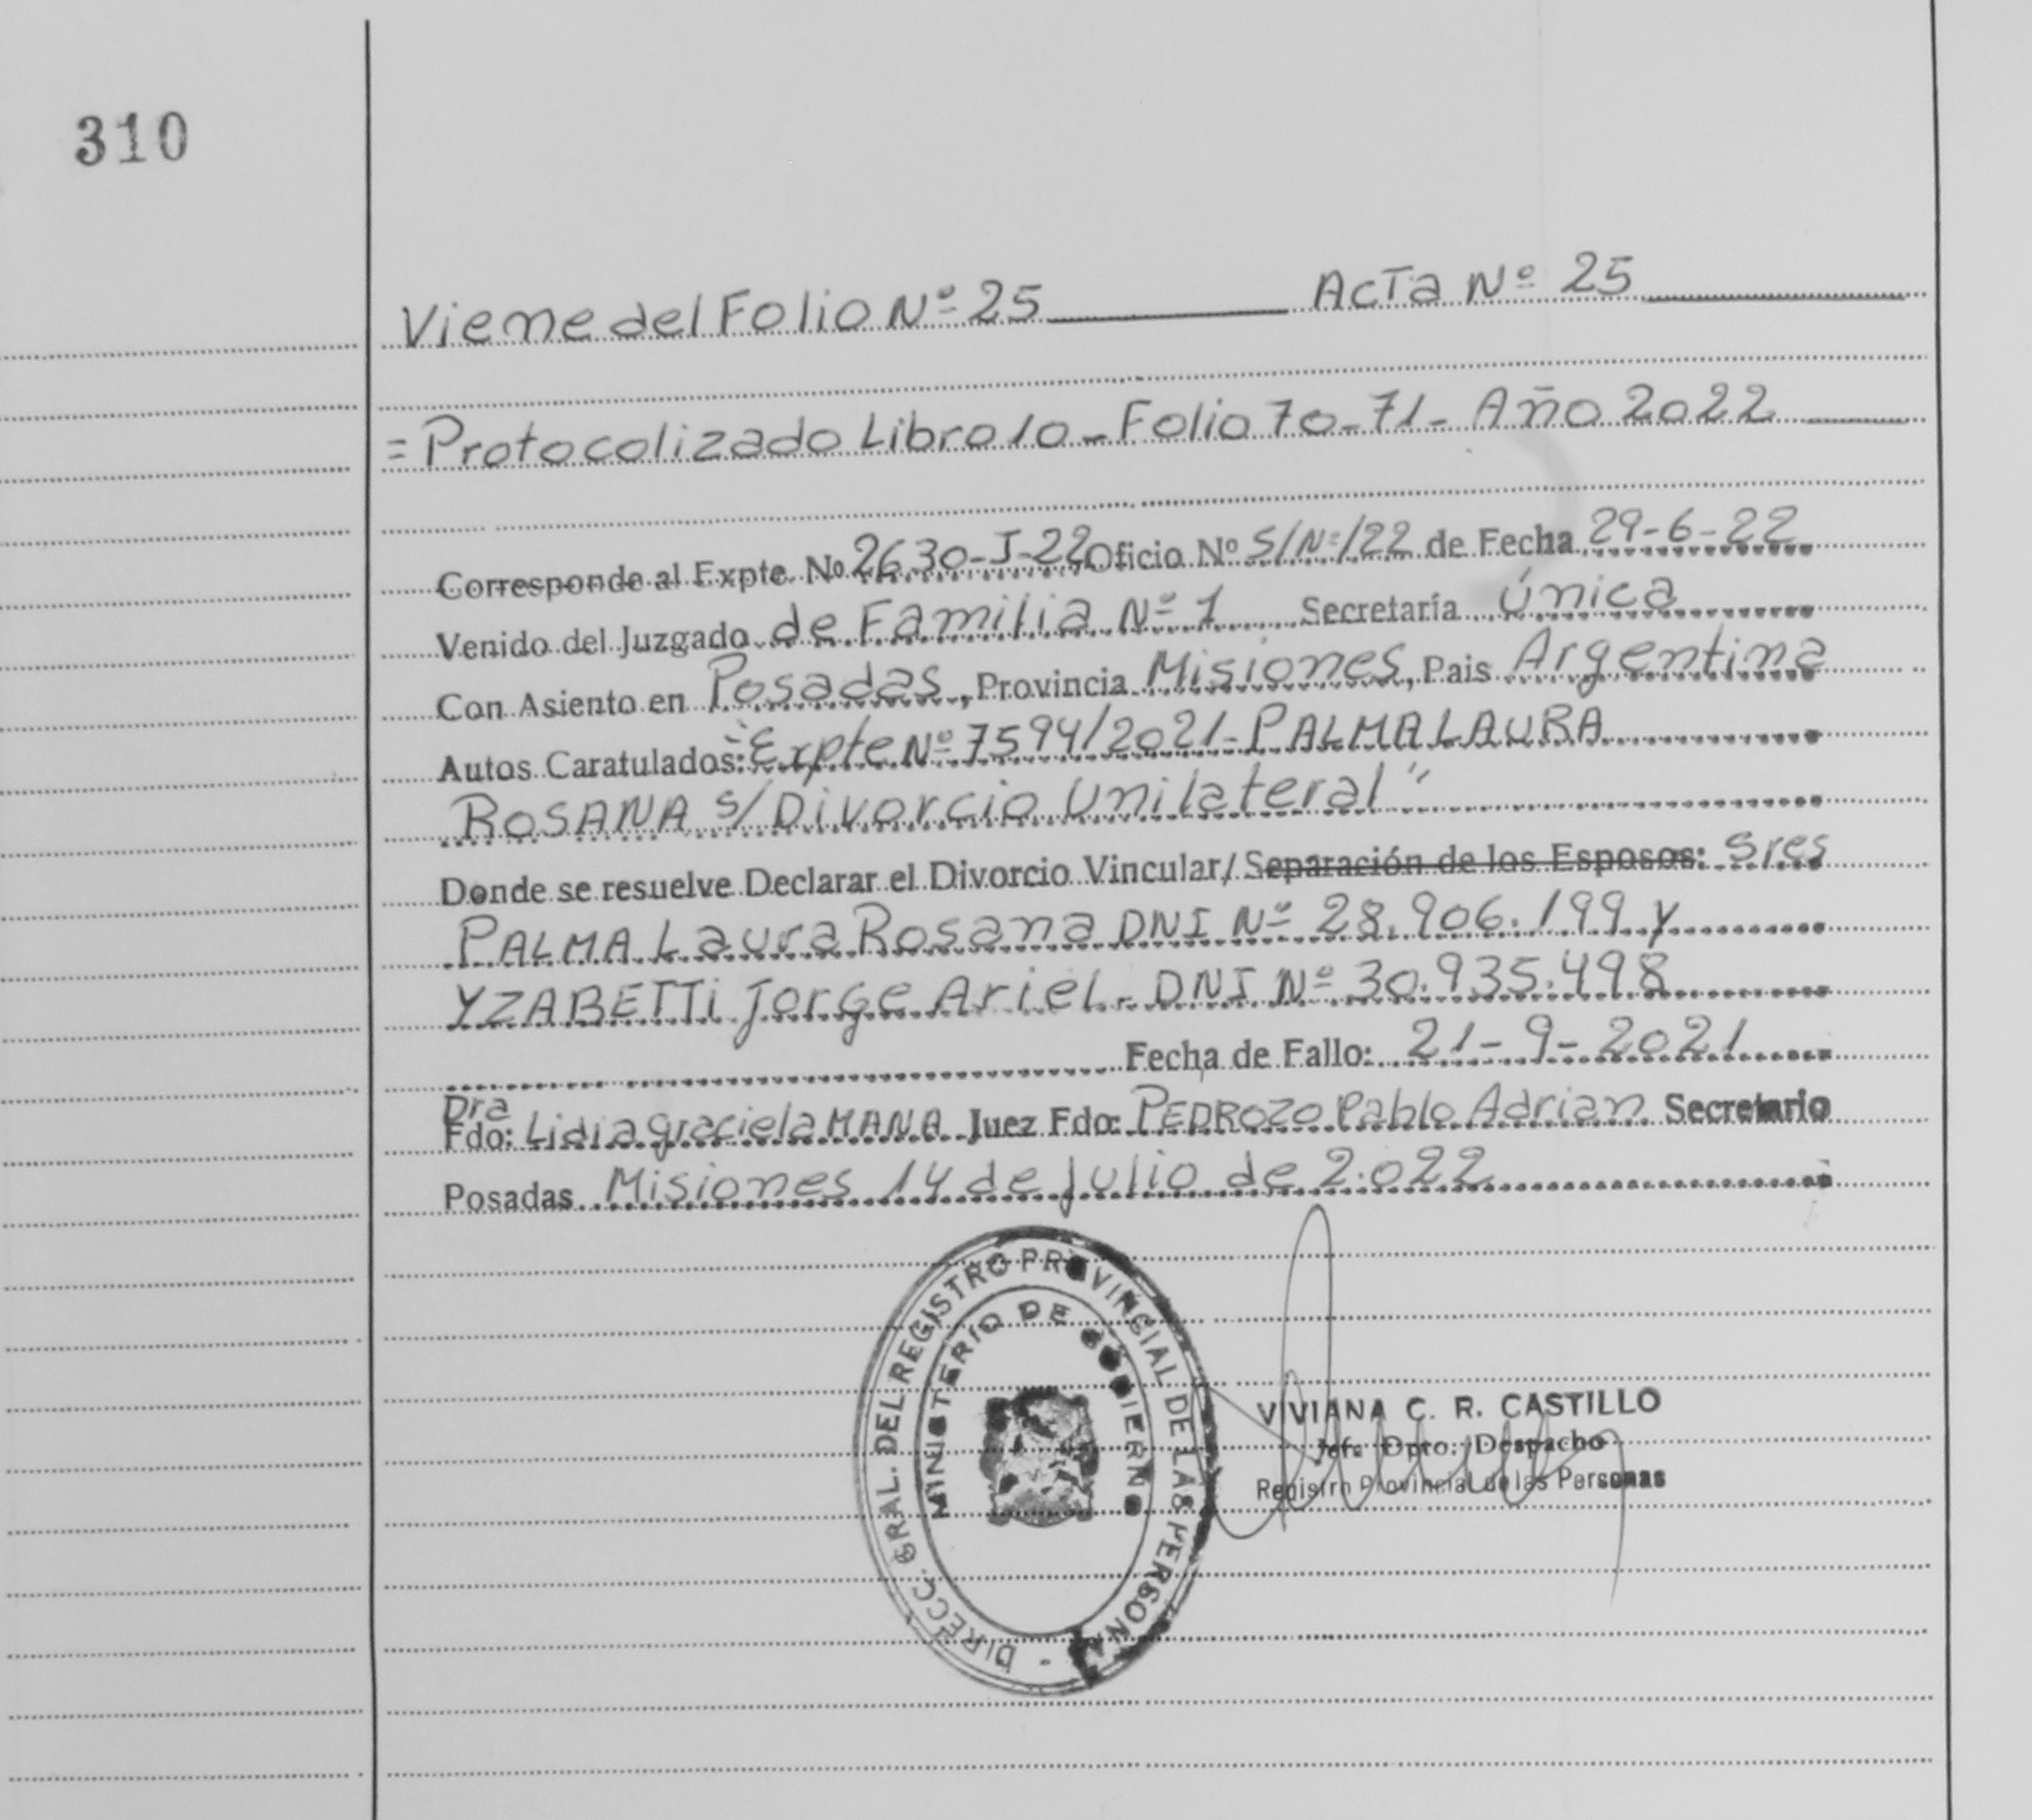 310
Viene del Folio Nº 25 Acta Nº 25
= Protocolizado Libro 10 - Folio 70-71- Año 2022
Corresponde al Expte. Nº 2630-J-22 Oficio Nº S/Nº/22 de Fecha 29-6-22
Venido del Juzgado de Familia Nº 1 Secretaría única
Con Asiento en Posadas, Provincia Misiones, Pais Argentina
Autos Caratulados: "Expte Nº 7594/2021- PALMA LAURA
ROSANA s/ Divorcio Unilateral"
Donde se resuelve Declarar el Divorcio Vincular/ Separación de los Esposos: Sres
PALMA Laura Rosana DNI Nº 28.906.199 y
YZABETTi Jorge Ariel - DNI Nº 30.935.498
Fecha de Fallo: 21-9-2021
Dra
Fdo: Lidia Graciela MANA Juez Fdo: PEDROZO Pablo Adrian Secretario
Posadas Misiones 14 de Julio de 2.022
DIRECC. GRAL. DEL REGISTRO PROVINCIAL DE LAS PERSONAS -
MINISTERIO DE GOBIERNO
VIVIANA C. R. CASTILLO
Jefa Dpto. Despacho
Registro Provincial de las Personas